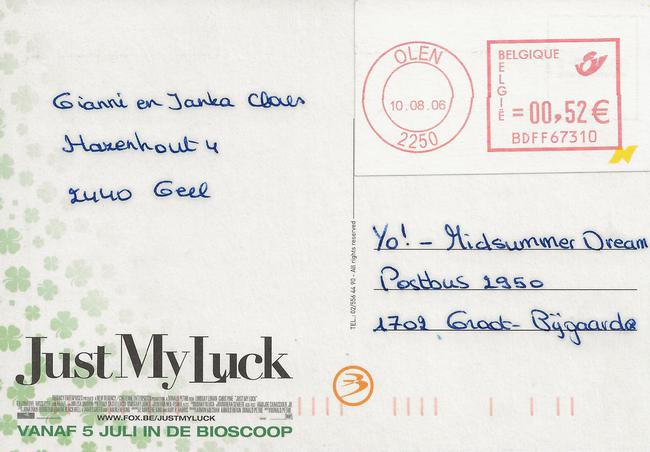 OLEN
10.08.06
2250
BELGIQUE
BELGIË
= 00,52 €
BDFF67310
Gianni en Janka Claes
Hazenhout 4
2440 Geel
TEL.: 02/556 44 90 - All rights reserved
Yo! - Midsummer Dream
Postbus 2950
1702 Groot-Bijgaarde
Just My Luck
WWW.FOX.BE/JUSTMYLUCK
VANAF 5 JULI IN DE BIOSCOOP